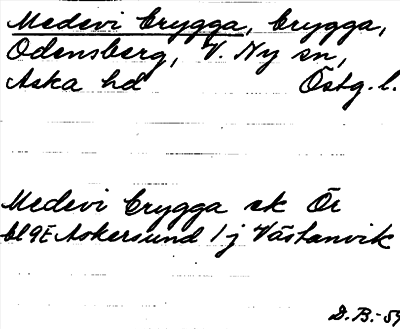 Medevi brygga, brygga,
Odensberg, V. Ny sn,
Aska hd Östg. l.
Medevi brygga sk Ör
bl 9E Askersund 1 j Västanvik
D.B.-59